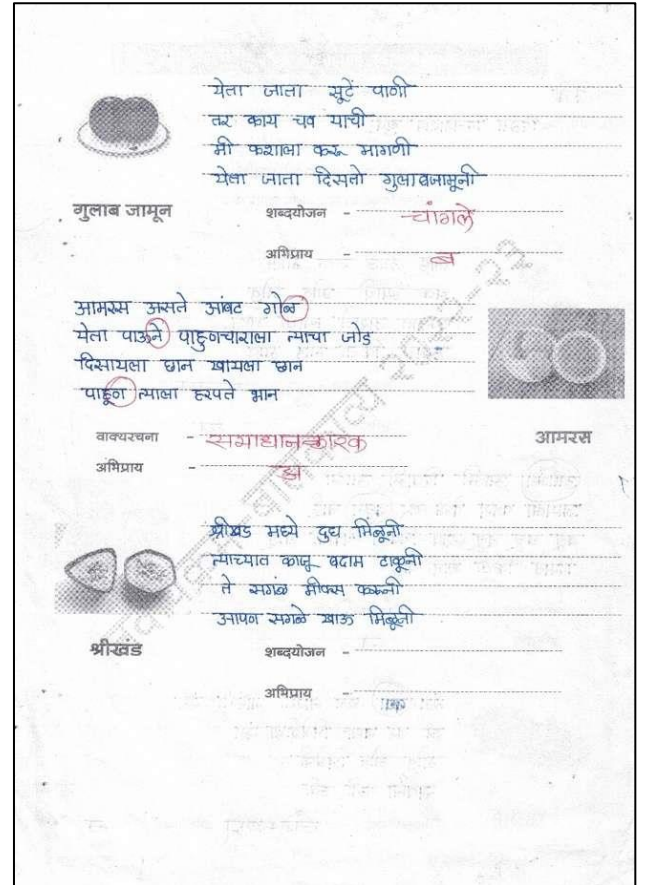 येता जाता सूटे पाणी
तर काय चव याची
मी कशाला करू मागणी
येता जाता दिसतो गुलाबजामूनी
गुलाब जामून
शब्दयोजन - चांगले
अभिप्राय - ब
आमरस असते आंबट गोळ
येता पाऊने पाहुणचाराला त्याचा जोड
दिसायला छान खायला छान
पाहूण त्याला हरपते भान
वाक्यरचना - समाधानकारक
अभिप्राय -
आमरस
श्रीखंड मध्ये दुध मिळूनी
त्याच्यात काजू बदाम टाकूनी
ते सगळं मीक्स करूनी
आपण सगळे खाऊ मिळूनी
श्रीखंड
शब्दयोजन -
अभिप्राय -
२०२२-२३